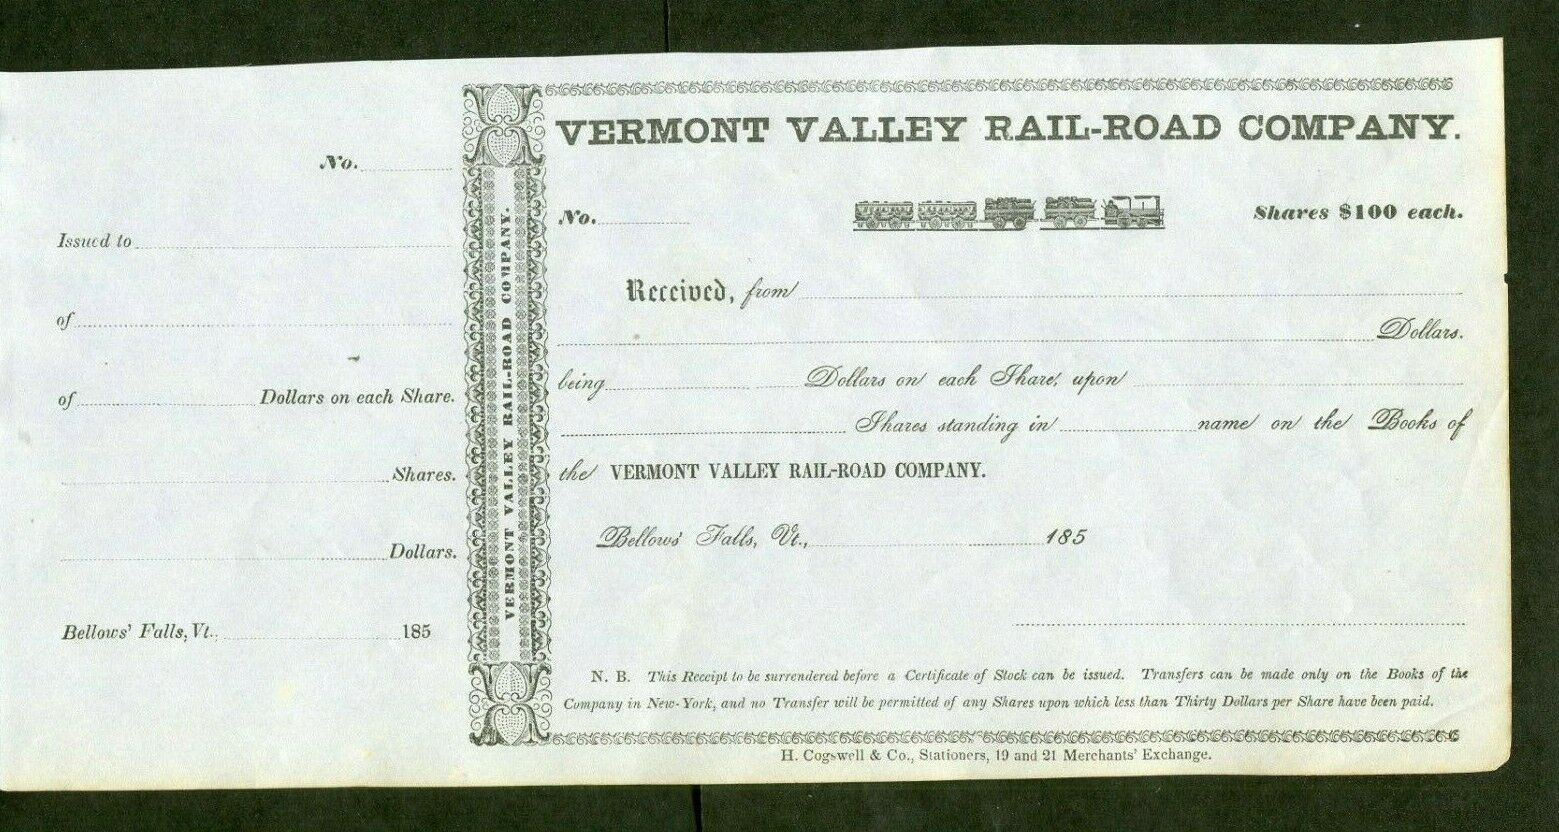 No.
Issued to
of
of Dollars on each Share.
Shares.
Dollars.
Bellows' Falls, Vt., 185
VERMONT VALLEY RAIL-ROAD COMPANY.
VERMONT VALLEY RAIL-ROAD COMPANY.
No. Shares $100 each.
Received, from
Dollars.
being Dollars on each Share, upon
Shares standing in name on the Books of
the VERMONT VALLEY RAIL-ROAD COMPANY.
Bellows' Falls, Vt., 185
N. B. This Receipt to be surrendered before a Certificate of Stock can be issued. Transfers can be made only on the Books of the
Company in New-York, and no Transfer will be permitted of any Shares upon which less than Thirty Dollars per Share have been paid.
H. Cogswell & Co., Stationers, 19 and 21 Merchants' Exchange.